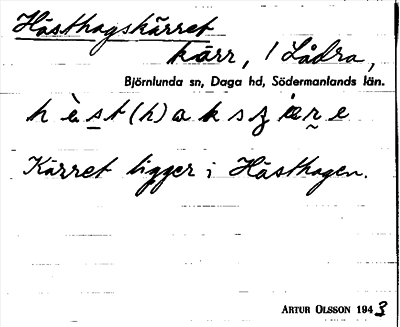 Hästhagskärret
kärr, / Lådra,
Björnlunda sn, Daga hd, Södermanlands län.
Kärret ligger i Hästhagen.
ARTUR OLSSON 1943